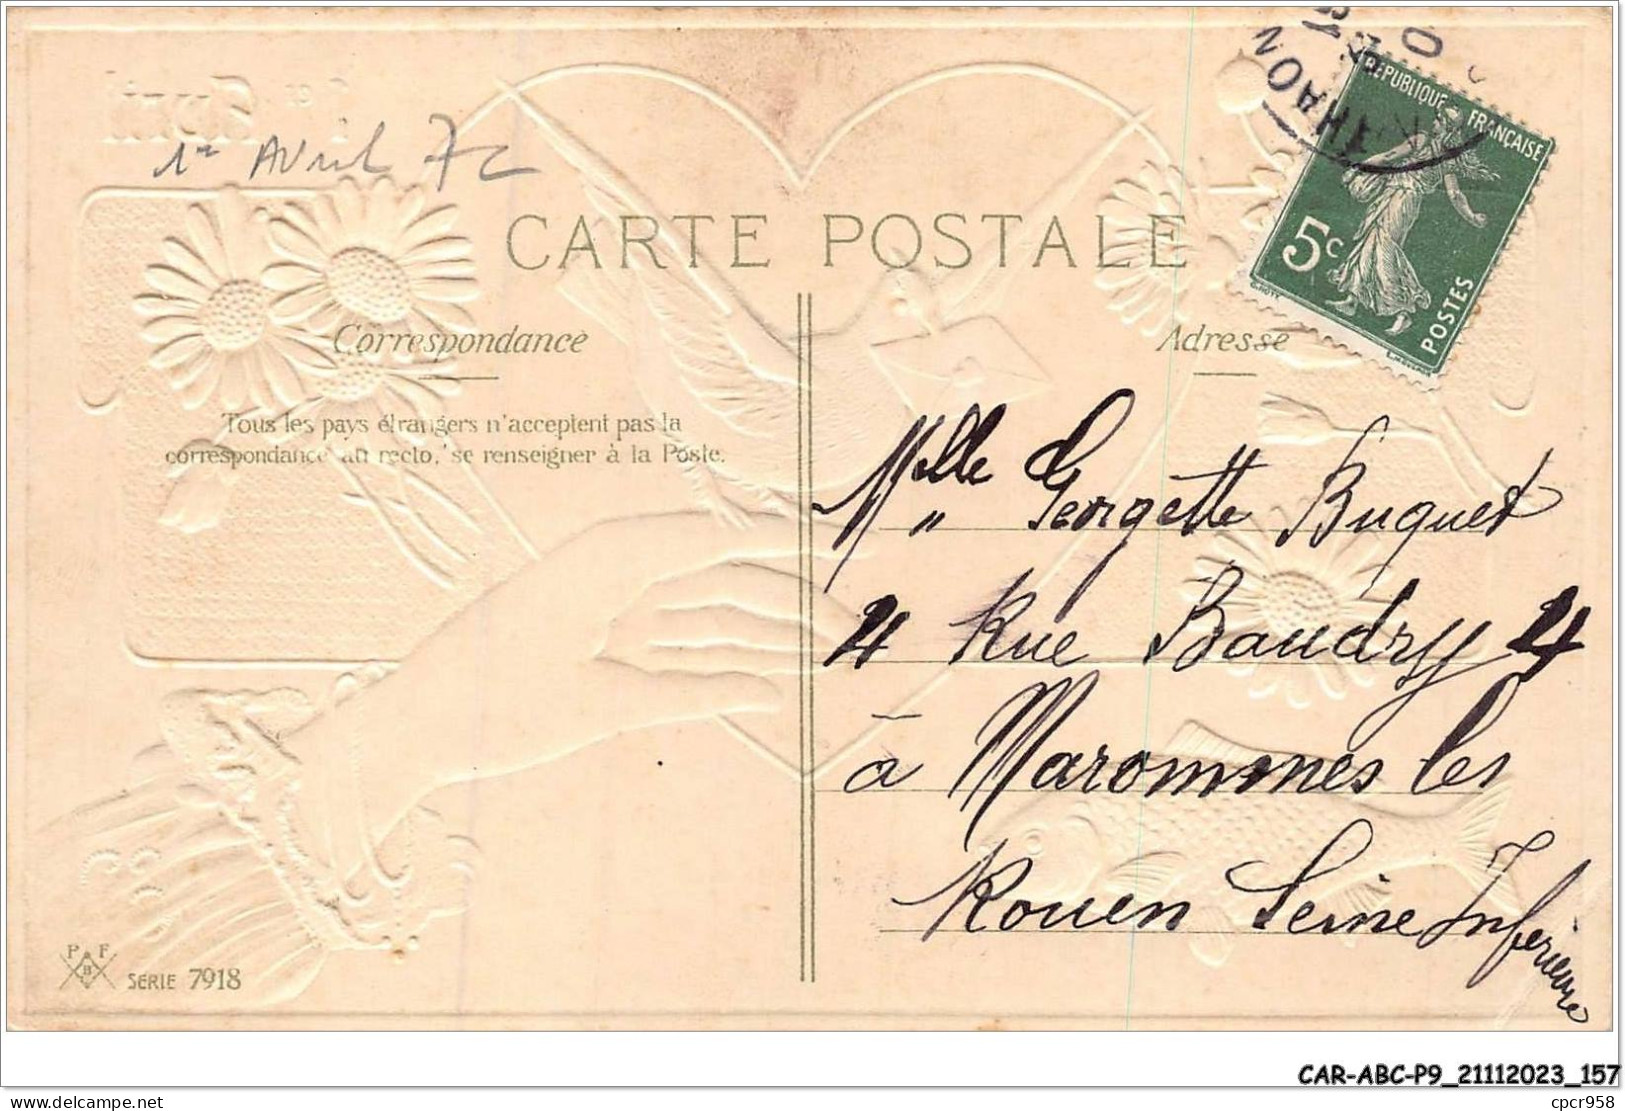 1er Avril 7c
THAON
RÉPUBLIQUE FRANÇAISE
5c
POSTES
CARTE POSTALE
Correspondance
Adresse
Tous les pays étrangers n'acceptent pas la
correspondance au recto, se renseigner à la Poste.
Mlle Georgette Buquet
4 Rue Baudry 4
à Marommes les
Rouen Seine Inférieure
P F
B
SÉRIE 7918
CAR-ABC-P9_21112023_157
delcampe.net
cpcr958